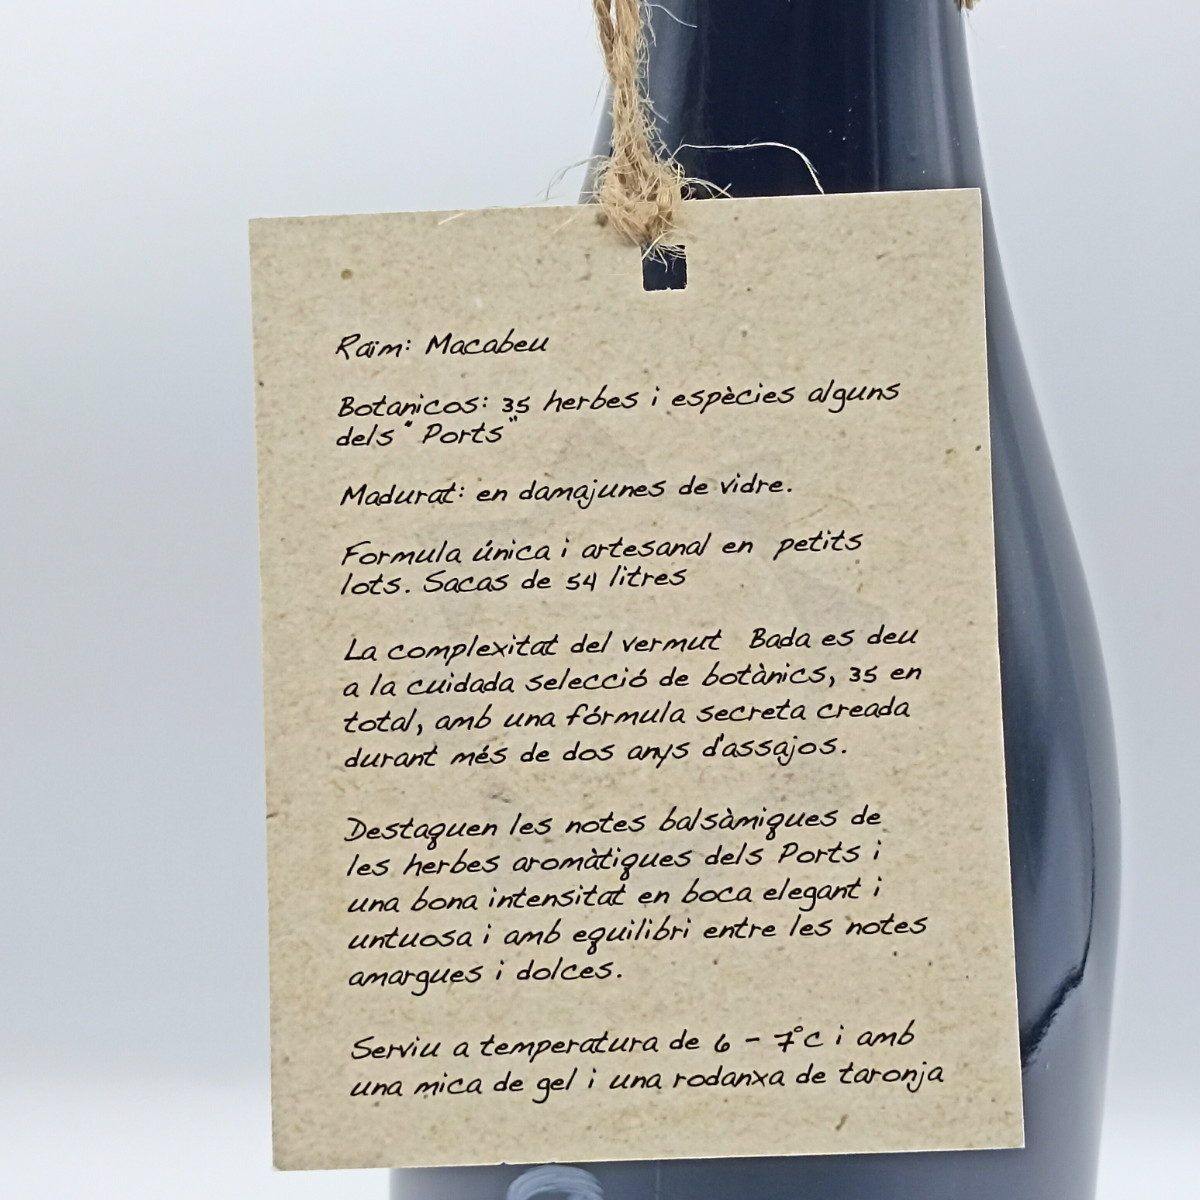 Raïm: Macabeu
Botanicos: 35 herbes i espècies alguns
dels "Ports"
Madurat: en damajunes de vidre.
Formula única i artesanal en petits
lots. Sacas de 54 litres
La complexitat del vermut Bada es deu
a la cuidada selecció de botànics, 35 en
total, amb una fórmula secreta creada
durant més de dos anys d'assajos.
Destaquen les notes balsàmiques de
les herbes aromàtiques dels Ports i
una bona intensitat en boca elegant i
untuosa i amb equilibri entre les notes
amargues i dolces.
Serviu a temperatura de 6 - 7°c i amb
una mica de gel i una rodanxa de taronja